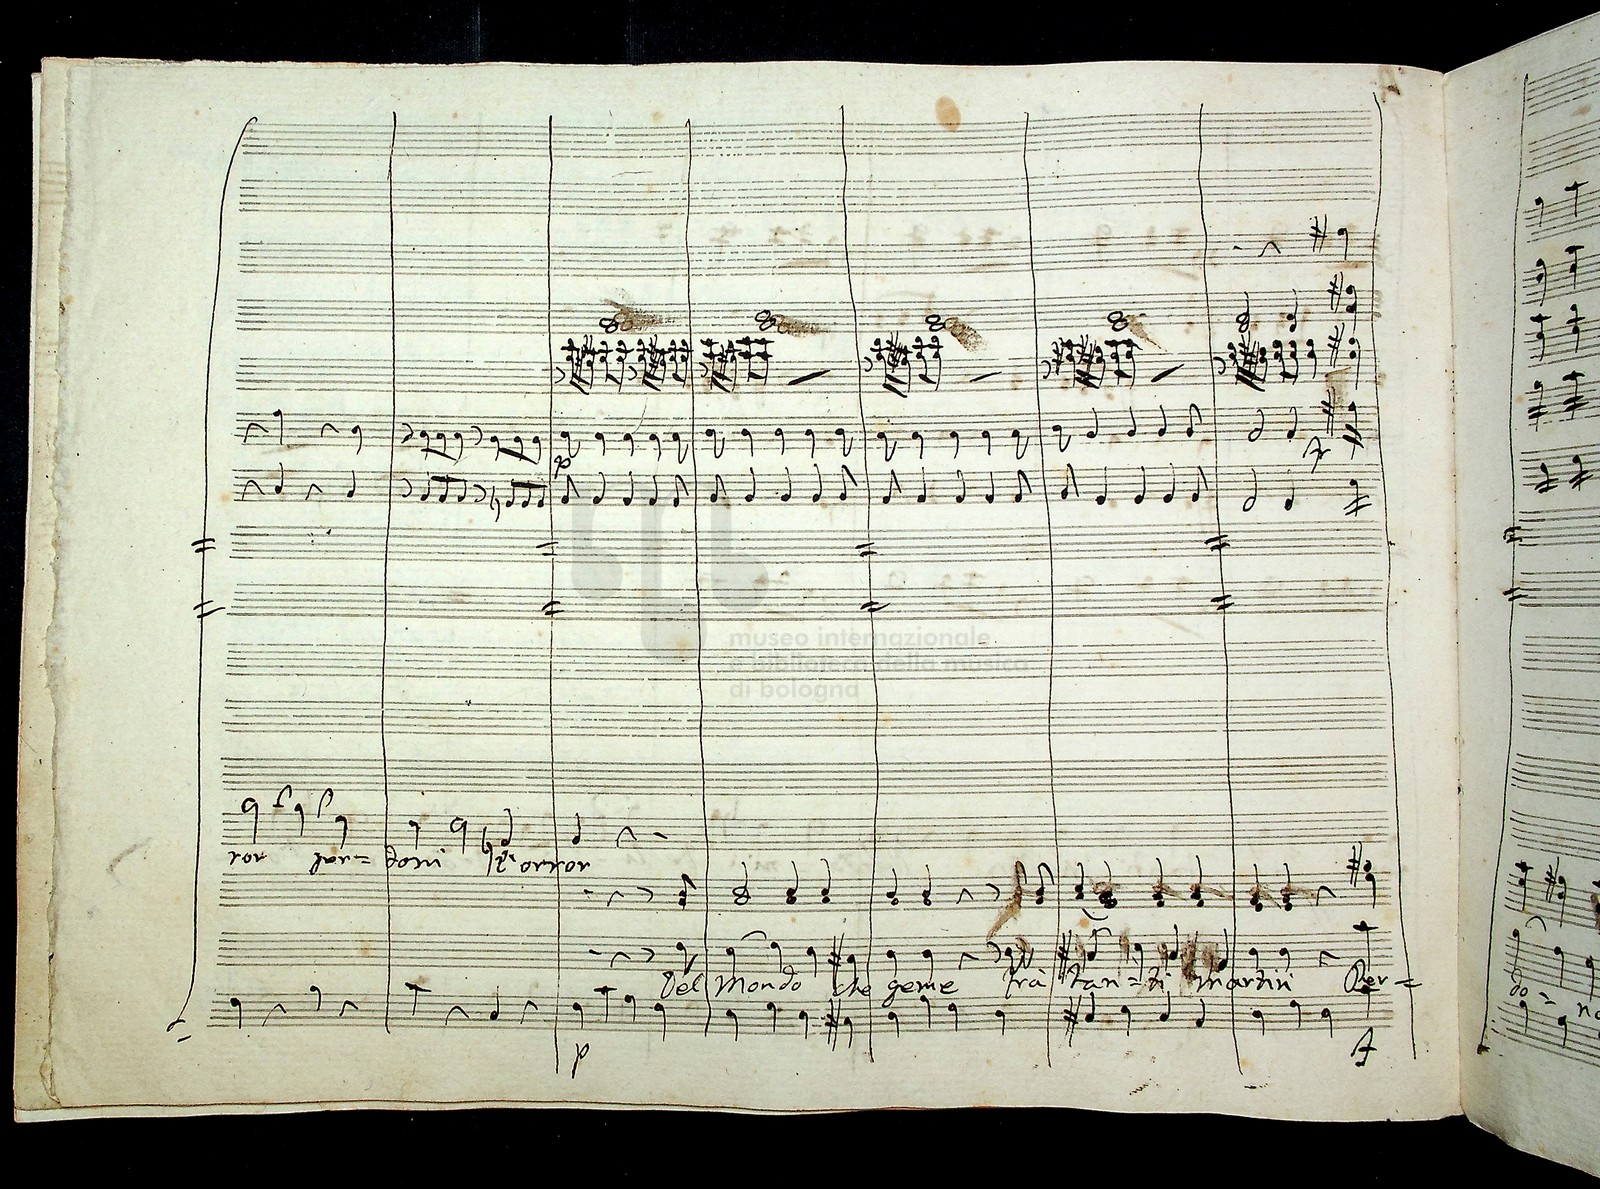 p
museo internazionale
e biblioteca della musica
di bologna
ror per= doni l'orror
Del Mondo che geme trà tan=ti martiri Per=
do= na
p f